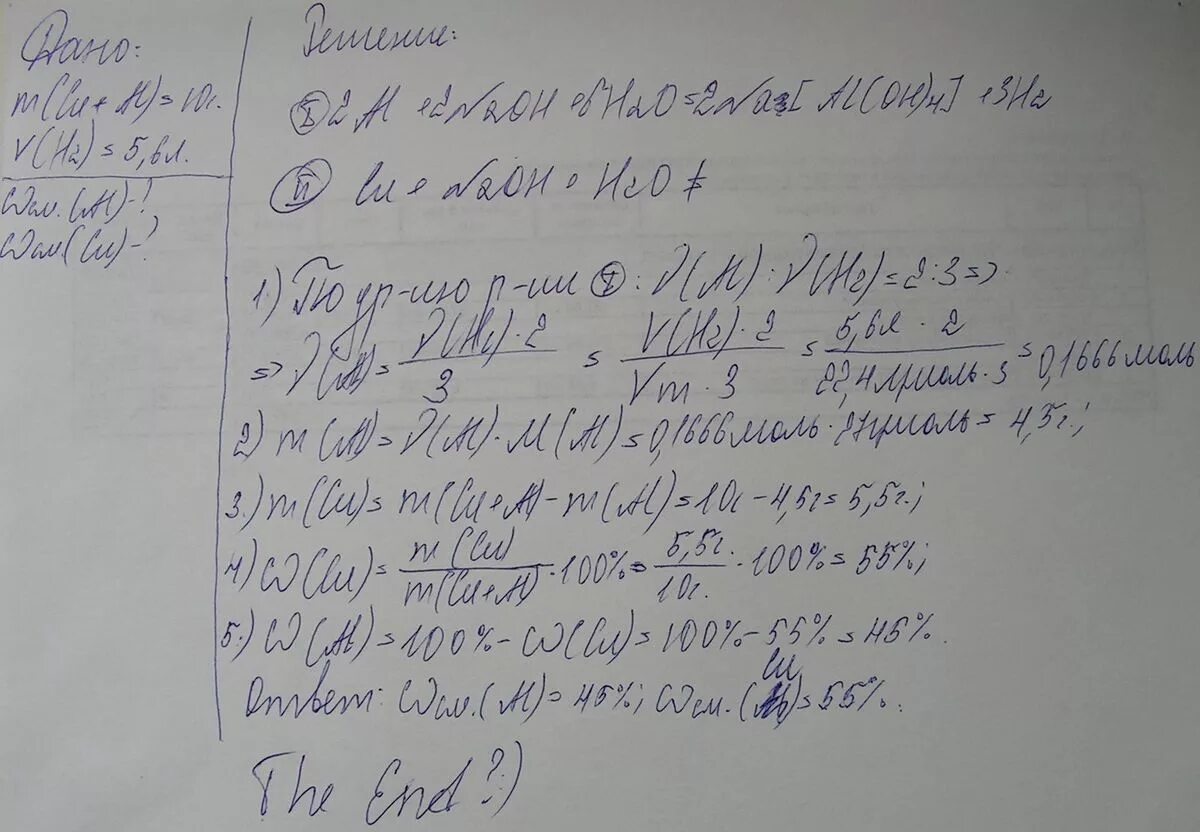 Дано:
m(Cu + Al) = 10г.
V(H2) = 5,6л.
Wсм.(Al) - ?
Wсм(Cu) - ?
Решение:
I 2Al + 2NaOH + 6H2O = 2Na[Al(OH)4] + 3H2
II Cu + NaOH + H2O ≠
1.) По ур-нию р-ции I: ν(Al) : ν(H2) = 2:3 =>
=> ν(Al) = ν(H2) · 2 / 3 = V(H2) · 2 / Vm · 3 = 5,6л · 2 / 22,4 л/моль · 3 = 0,1666 моль
2) m(Al) = ν(Al) · M(Al) = 0,1666 моль · 27г/моль = 4,5г.;
3.) m(Cu) = m(Cu + Al) - m(Al) = 10г - 4,5г = 5,5г.;
4) W(Cu) = m(Cu) / m(Cu+Al) · 100% = 5,5г. / 10г. · 100% = 55%;
5.) W(Al) = 100% - W(Cu) = 100% - 55% = 45%.
Ответ: Wсм.(Al) = 45%; Wсм.(Cu) = 55%.
The End ?)